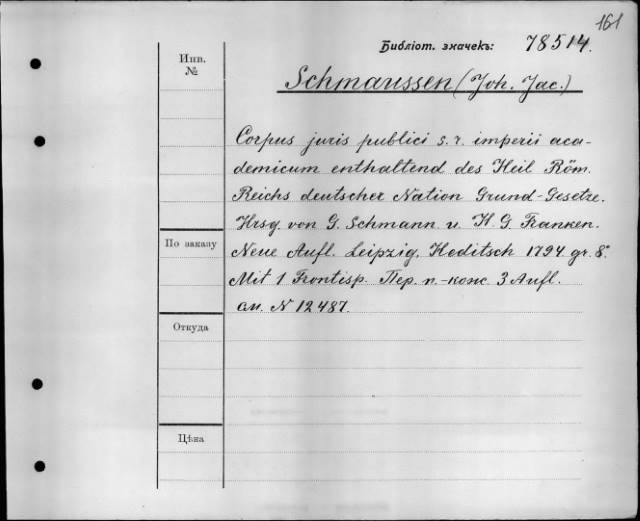 161
Библіот. значекъ: 78514.
Инв. №
Schmaussen (Joh. Jac.)
Corpus juris publici s. r. imperii aca-
demicum enthaltend des Heil Röm.
Reichs deutscher Nation Grund-Gesetze.
Hrsg. von G. Schmann u. H. G. Franken.
По заказу
Neue Aufl. Leipzig, Heditsch 1794 gr. 8°
Mit 1 Frontisp. Пер. п.-кож. 3 Aufl.
см. N 12487.
Откуда
Цѣна